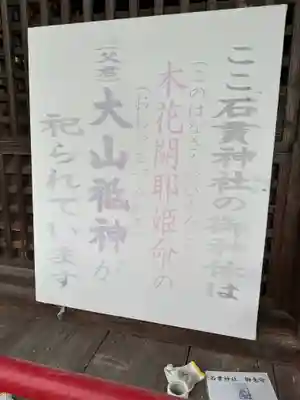 ここ石貫神社の御神体は
(このはなさくやひめのみこと)
木花開耶姫命の
(おおやまつみのかみ)
(父君)大山祗神が
祀られています
石貫神社 御朱印